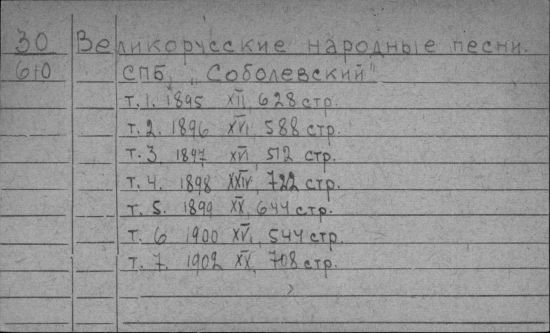 30 Великорусские народные песни.
610 СПБ, „Соболевский"
т. 1. 1895 XII, 628 стр.
т. 2. 1896 XVI, 588 стр.
т. 3 1897 XVI, 512 стр.
т. 4. 1898 XXIV, 722 стр.
т. 5. 1899 XX, 644 стр.
т. 6 1900 XVI, 544 стр.
т. 7. 1902 XX, 708 стр.